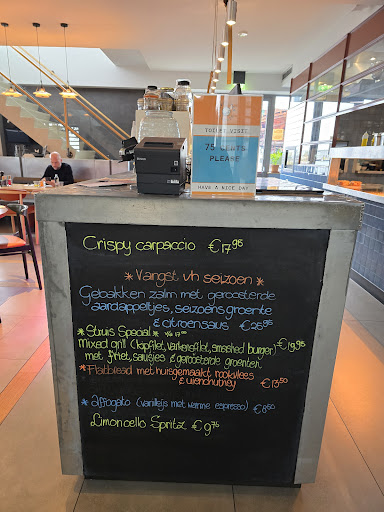 TOILET VISIT
75 CENTS
PLEASE
HAVE A NICE DAY
Crispy carpaccio €17,95
* Vangst vh seizoen *
Gebakken zalm met geroosterde
aardappeltjes, seizoensgroente
& citroensaus €25,95
* Struis Special * v/a 17:00
mixed grill (kipfilet, varkensfilet, smashed burger) €19,95
met friet, sausjes & geroosterde groenten
* Flatbread met huisgemaakt rookvlees
& uienchutney €13,50
* affogato (vanilleijs met warme espresso) €6,50
Limoncello Spritz €9,75